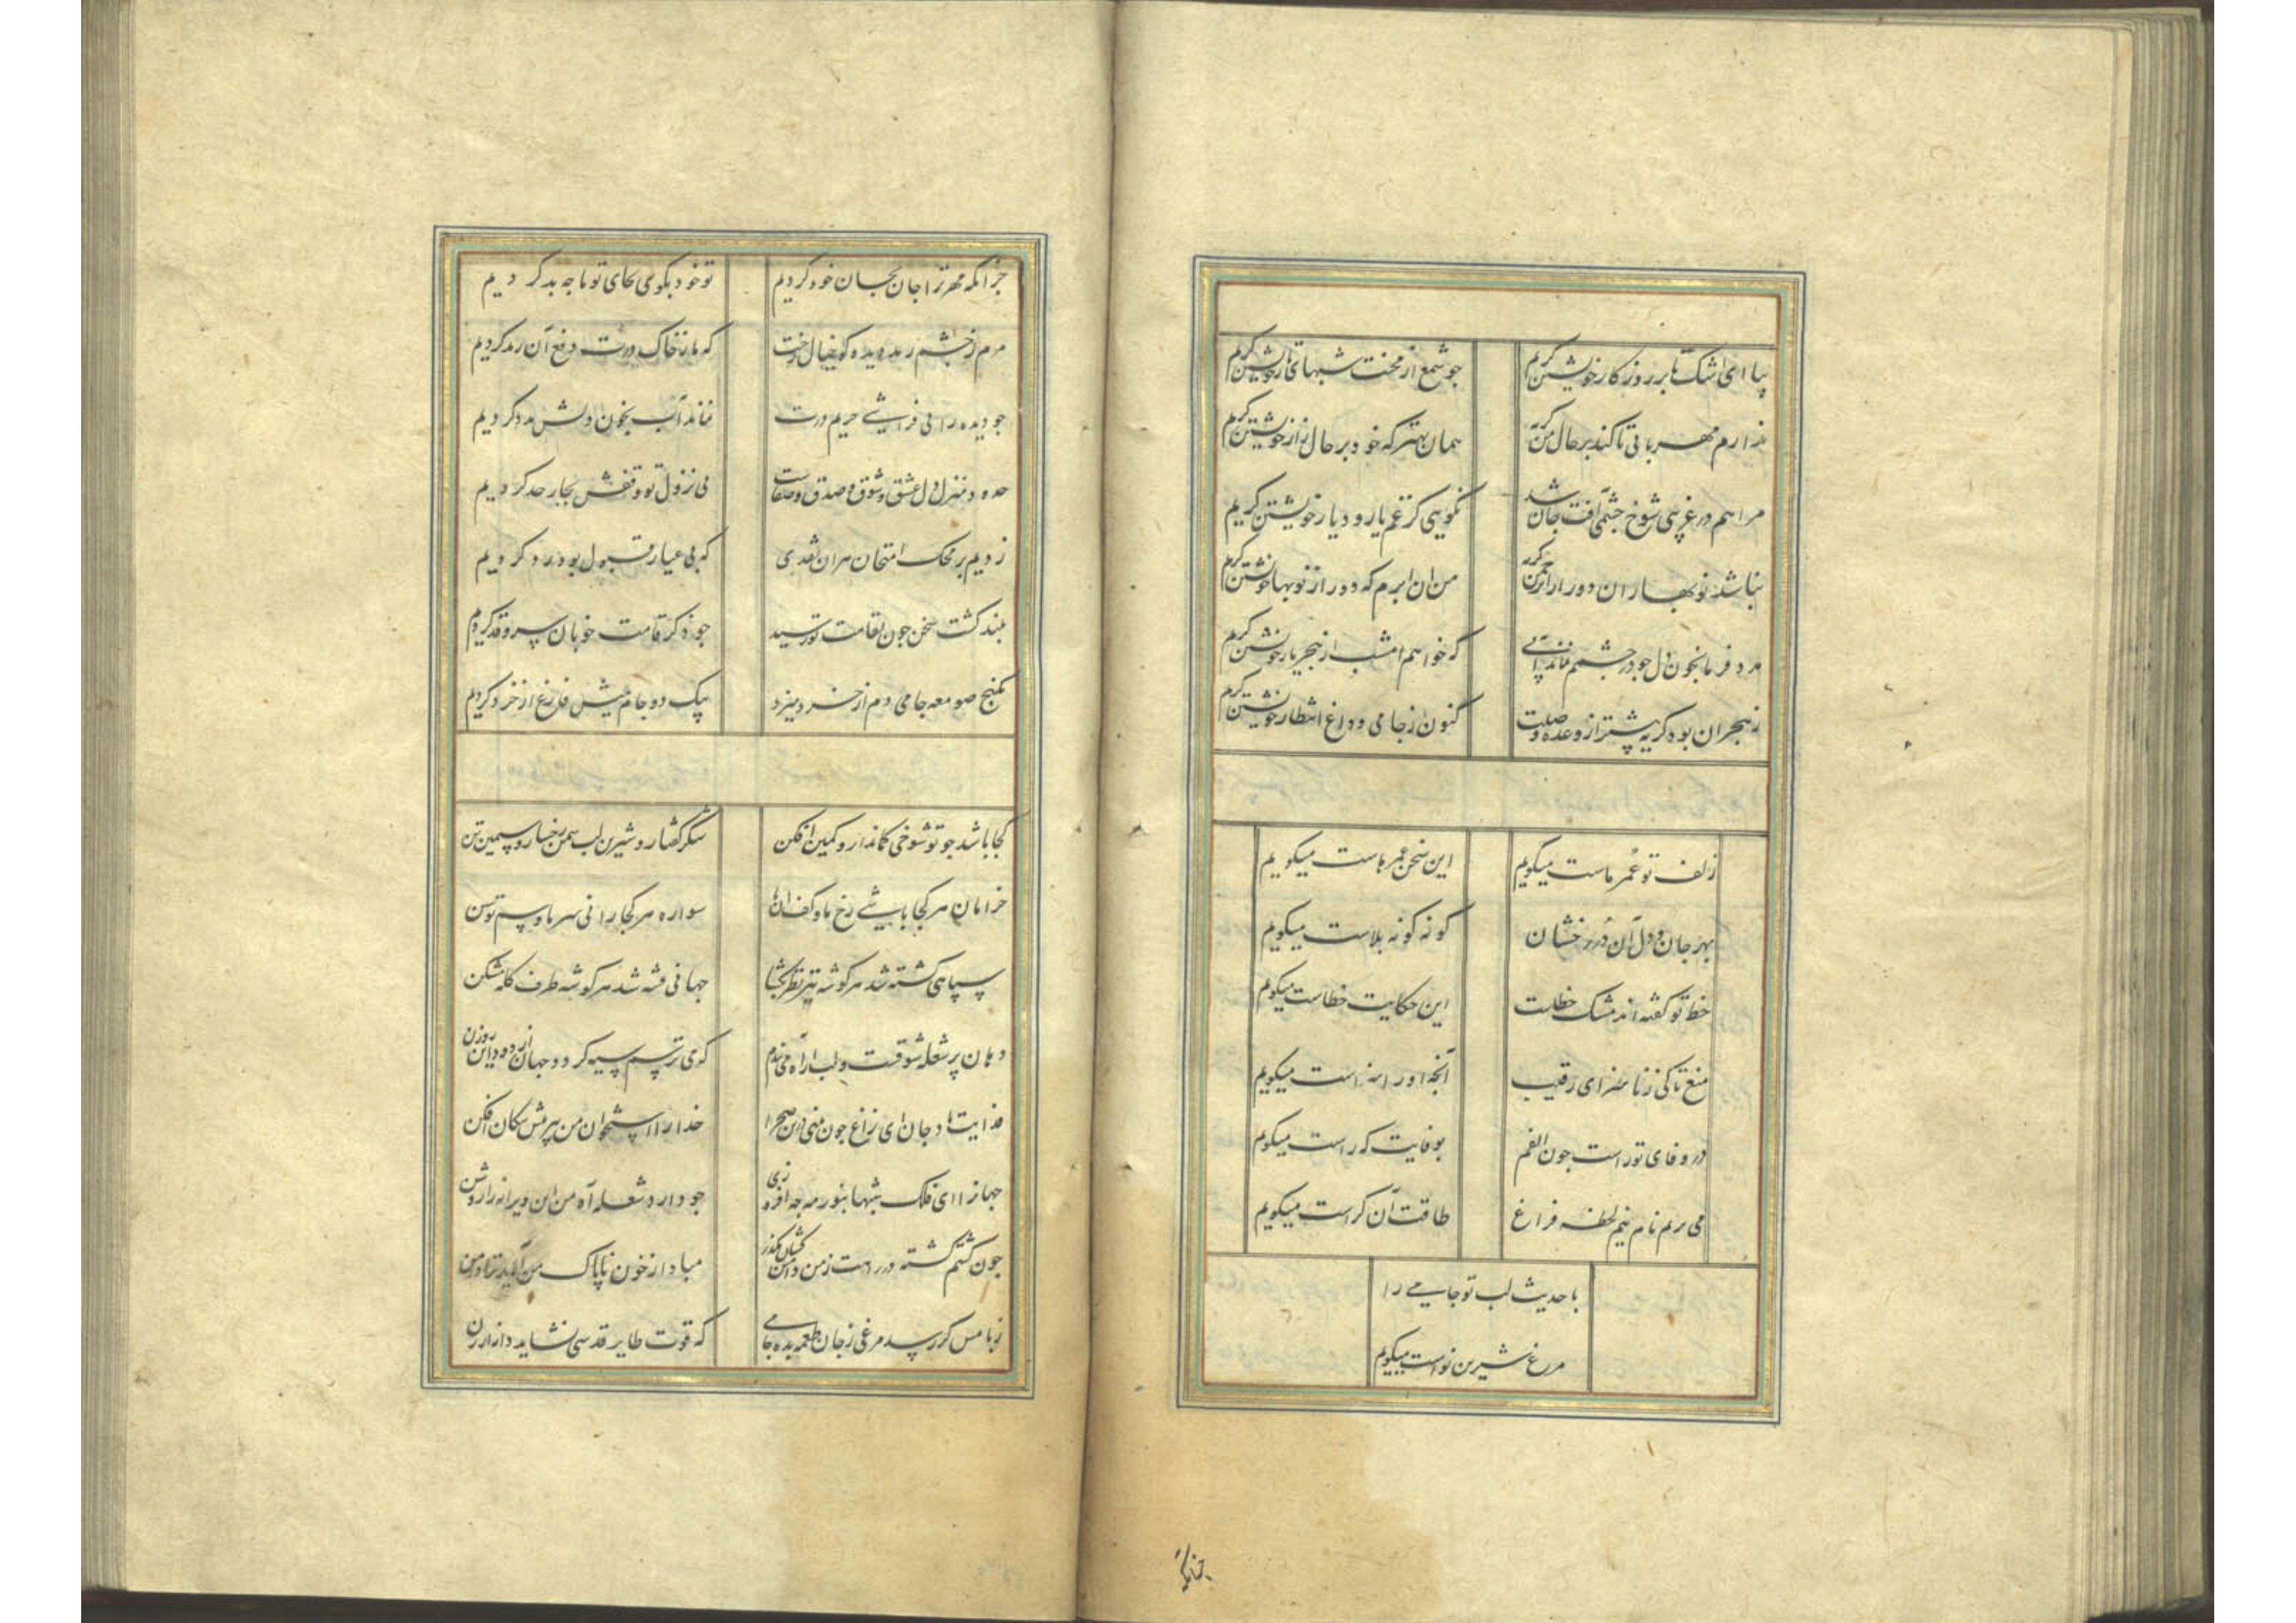 بیا ای اشک تا بر روزکار خویشتن کریم جو شمع از محنت شبهای تار خویشتن کریم
ندارم مهربانی تا کند بر حال من کریه همان بهتر که خود بر حال زار خویشتن کریم
مرا هم در غریبی شوخ جشمی آفت جان شد نکویی کز غم یار و دیار خویشتن کریم
نباشد نوبهاران دور از ابر چمن کریه من ان ابرم که دور از نوبهار خویشتن کریم
مدد فرما بخون دل جو در جشمم نماند آبی که خواهم امشب از هجر یار خویشتن کریم
ز هجران بود کریه پیشتر از وعده وصلت کنون از جامی و داغ انتظار خویشتن کریم
زلف تو عمر ماست میکویم این سخن عمرهاست میکویم
بهر جان و دل آن در خشان کونه کونه بلاست میکویم
خط تو کفته اند مشک خطاست این حکایت خطاست میکویم
منع تا کی ز ناسزای رقیب آنجه او را سزاست میکویم
در وفای تو راست جون الفم بوفایت که راست میکویم
می برم نام نیم لحظه فراغ طاقت آن کراست میکویم
با حدیث لب تو جامی را
مرغ شیرین نواست میکویم
جزانکه
جز انکه مهر ترا جان بجان خود کردیم تو خود بکوی بجای تو ما جه بد کردیم
مرم ز جشم رمد دیده کو خیال رخت که ما ز خاک درت دفع آن رمد کردیم
جو دیده را پی فراشی حریم درت نماند آب بخون دلش مدد کردیم
حدود منزل دل عشق و شوق و صدق و صفاست پی نزول تو وقفش بجار حد کردیم
زدیم بر محک امتحان هران نقدی که بی عیار قبول بود رد کردیم
بلند کشت سخن جون بقامت تو رسید جو ذکر قامت خوبان سرو قد کردیم
بکنج صومعه جامی دم از خرد میزد بیک دو جام میش فارغ از خرد کردیم
کجا باشد جو تو شوخی کماندار و کمین افکن شکر کفتار و شیرین لب سمن رخسار و سیمین تن
خرامان هر کجا باشی رخ ما و کف ان پا سواره هر کجا رانی سر ما و سم توسن
سپاهی کشته شد هر کوشه تیر نظر بکشا جهانی فتنه شد هر کوشه طرف کله مشکن
دهان پر شعله شوقست و لب از آه می بندم که می ترسم سیه کردد جهان از دود این روزن
فدایت باد جان ای زاغ جون منی درین صحرا خدا را استخوان من به پیش سکان افکن
جهانرا ای فلک شبها بنور مه جه افروزی جو دارد شعله آه من ان ویرانه را روشن
جون کشتم کشته در دست ز من دامن کشان مکذر مباد از خون ناپاک من آلاید ترا دامن
ز بامش کر رسد مرغی ز جان طعمه بده جامی که قوت طایر قدسی نشاید داز ارزن